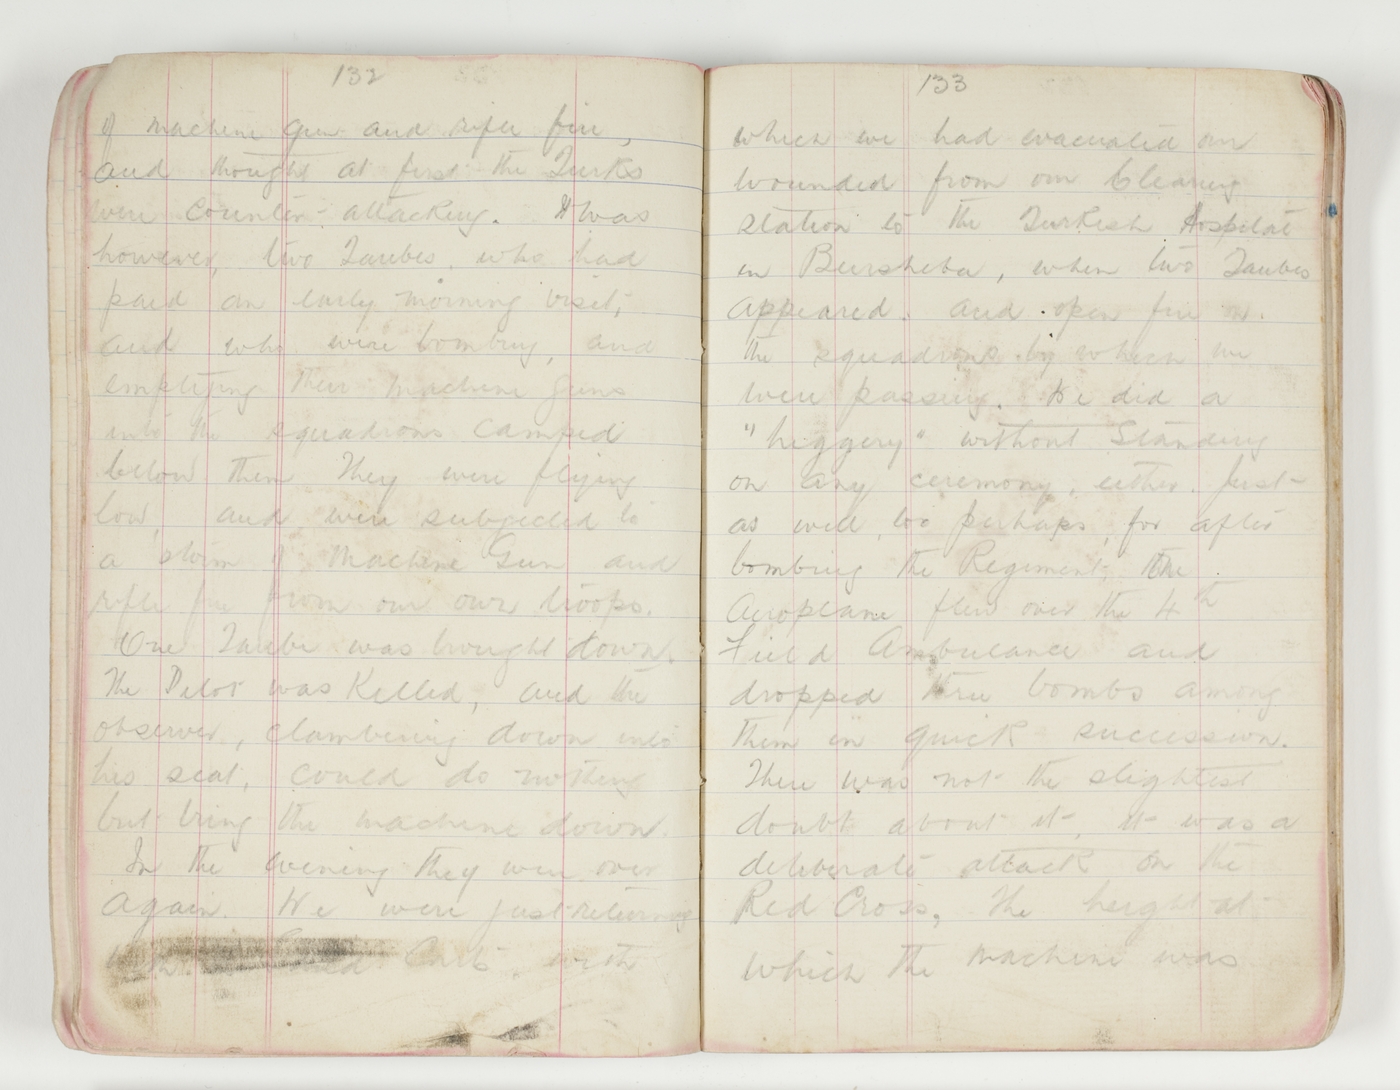 132
of machine gun and rifle fire,
and thought at first the Turks
were counter-attacking. It was
however, two Taubes, who had
paid an early morning visit,
and who were bombing, and
emptying their machine guns
into the squadrons camped
below them They were flying
low, and were subjected to
a storm of Machine Gun and
rifle fire from our own troops.
One Taube was brought down.
The Pilot was Killed, and the
observer, clambering down into
his seat, could do nothing
but bring the machine down.
In the evening they were over
again. We were just returning
Carts, with
133
which we had evacuated our
wounded from our Clearing
station to the Turkish Hospital
in Beersheba, when two Taubes
appeared. and open fire on.
the squadrons by which we
were passing. We did a
"higgery" without Standing
on any ceremony, either. Just
as well, too perhaps, for after
bombing the Regiment, the
Aeroplane flew over the 4th
Field Ambulance and
dropped three bombs among
them in quick succession.
There was not the slightest
doubt about it, it was a
deliberate attack on the
Red Cross, The height at
which the machine was